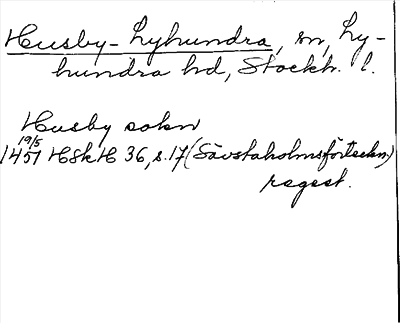 Husby-Lyhundra, sn, Ly-
hundra hd, Stockh. l.
Husby sokn
19/5
1451 HSkH 36, s. 17 (Sävstaholmsförteckn.)
regest.